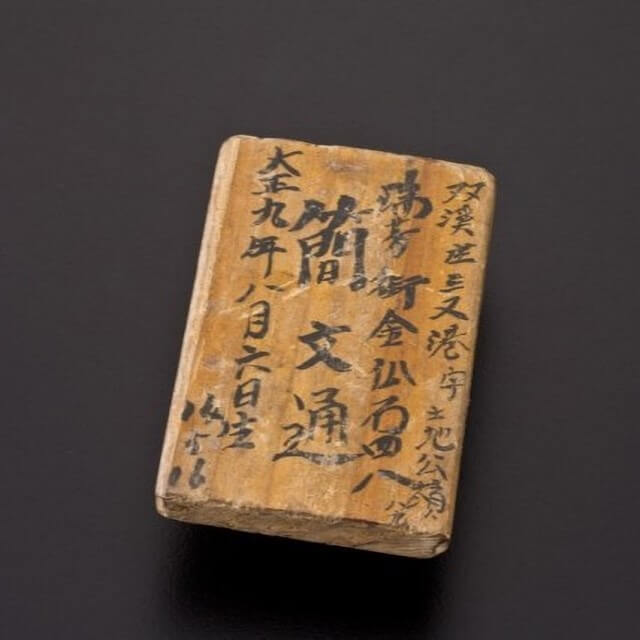 双溪庄三叉港字土地公嶺
瑞芳街金瓜石四八
簡文通
大正九年八月六日生
16